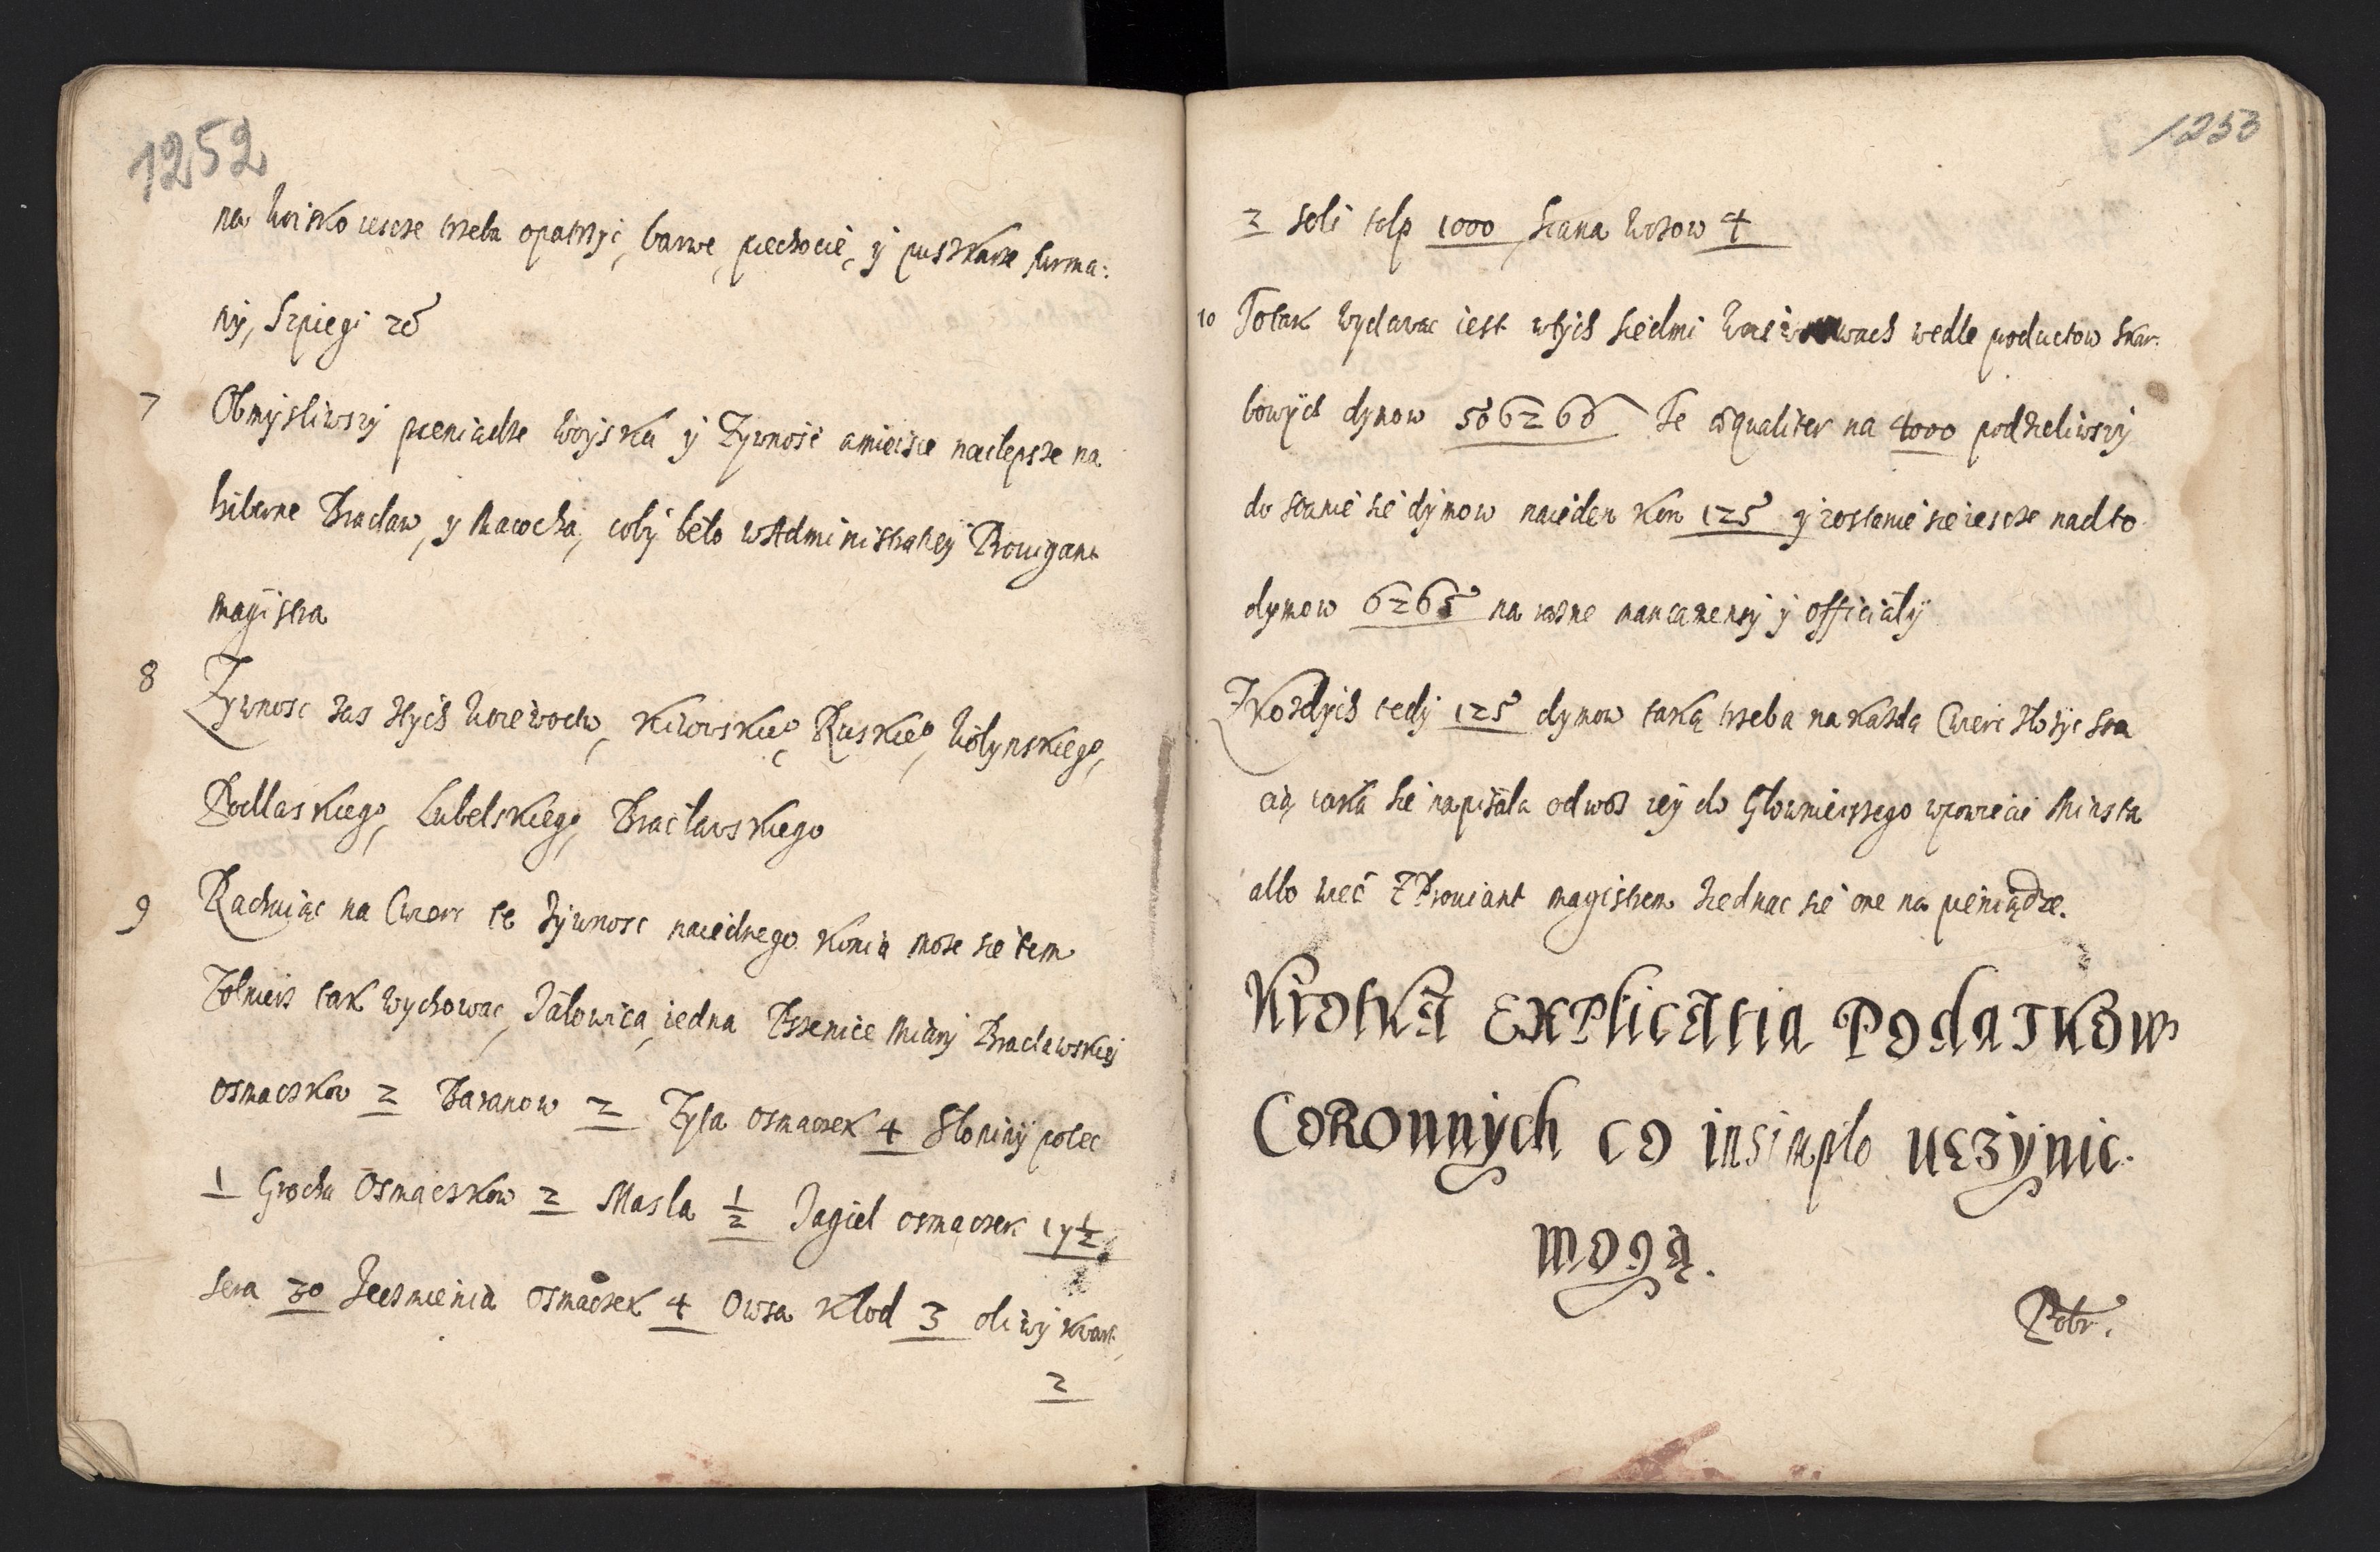 1252
na woisko iescze trzeba opatrzyć, barwe, piechocie, y puszkarze furma:
ny, Szpiegi
7 Obmysliwszy pieniadze woysku y Zywność a mieisce naylepsze na
hiberne Braclaw, y Racocha, coby beło w Administratiey Prowiant
magistra
8 Zywnosc zas ztych Woiewodtw, Kiiowskieo, Ruskieo, Wołynskiego,
Podlaskiego, Lubelskiego, Bracławskiego
9 Rachuiąc na Cwierc te zywnosc na iednego konia moze sie tem
Zołnierz tak wychowac, Jałowica, iedna Pszenice Miary Braclawskiej
osmaczkow 2 Baranow 2 Zyta osmaczek 4 Słoniny połec
1 Grochu Osmaczkow 2 Masla 1/2 Jagieł osmaczek 1 y 1/2
sera 30 Jeczmienia osmaczek 4 Owsa kłod 3 oliwy kwart
2
1253
2 soli tolp 1000 siana wozow 4
10 To tak wydawac iest w tych siedmi woiewowach wedle poductow skar:
bowych dymow 506266 Te æqualiter na 4000 podzieliwszy
dostanie sie dymow na ieden kon 125 y zostanie sie iescze nadto
dymow 6265 na rozne mancamenty y officiały
Z kozdych tedy 125 dymow taką trzeba na kazdą Cwierc złozyc sta
cią iaka sie napisała odwoz iey do Głownieiszego w powiecie Miasta
albo weć Z Prowiant magistrem Ziednac sie one na pieniądze.
Krotka Explicatia Podatkow
Coronnych co in simplo uczynic
mogą.
Pobr.